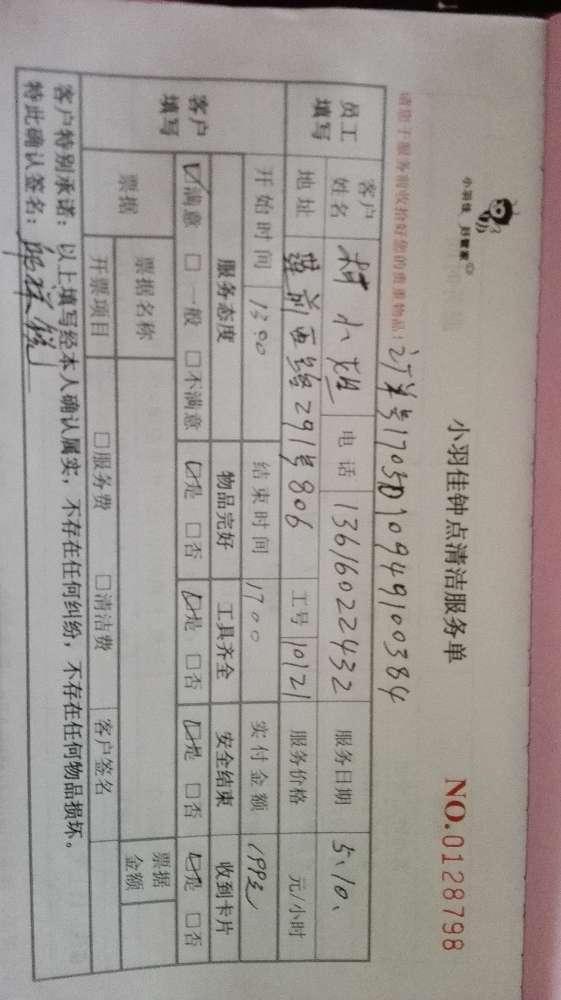 小羽佳 好管家
小羽佳钟点清洁服务单
NO.0128798
请您于服务前收拾好您的贵重物品！订单号1705070949100384
员工填写 客户姓名 林小姐 电话 13616022432 服务日期 5.10.
地址 前西路291号806 工号 10121 服务价格 元/小时
客户填写 开始时间 13:00 结束时间 1700 实付金额 199元
服务态度 物品完好 工具齐全 安全结束 收到卡片
☑满意 □一般 □不满意 ☑是 □否 ☑是 □否 ☑是 □否 ☑是 □否
票据 票据名称 票据金额
开票项目 □服务费 □清洁费 客户签名
客户特别承诺：以上填写经本人确认属实，不存在任何纠纷，不存在任何物品损坏。
特此确认签名：